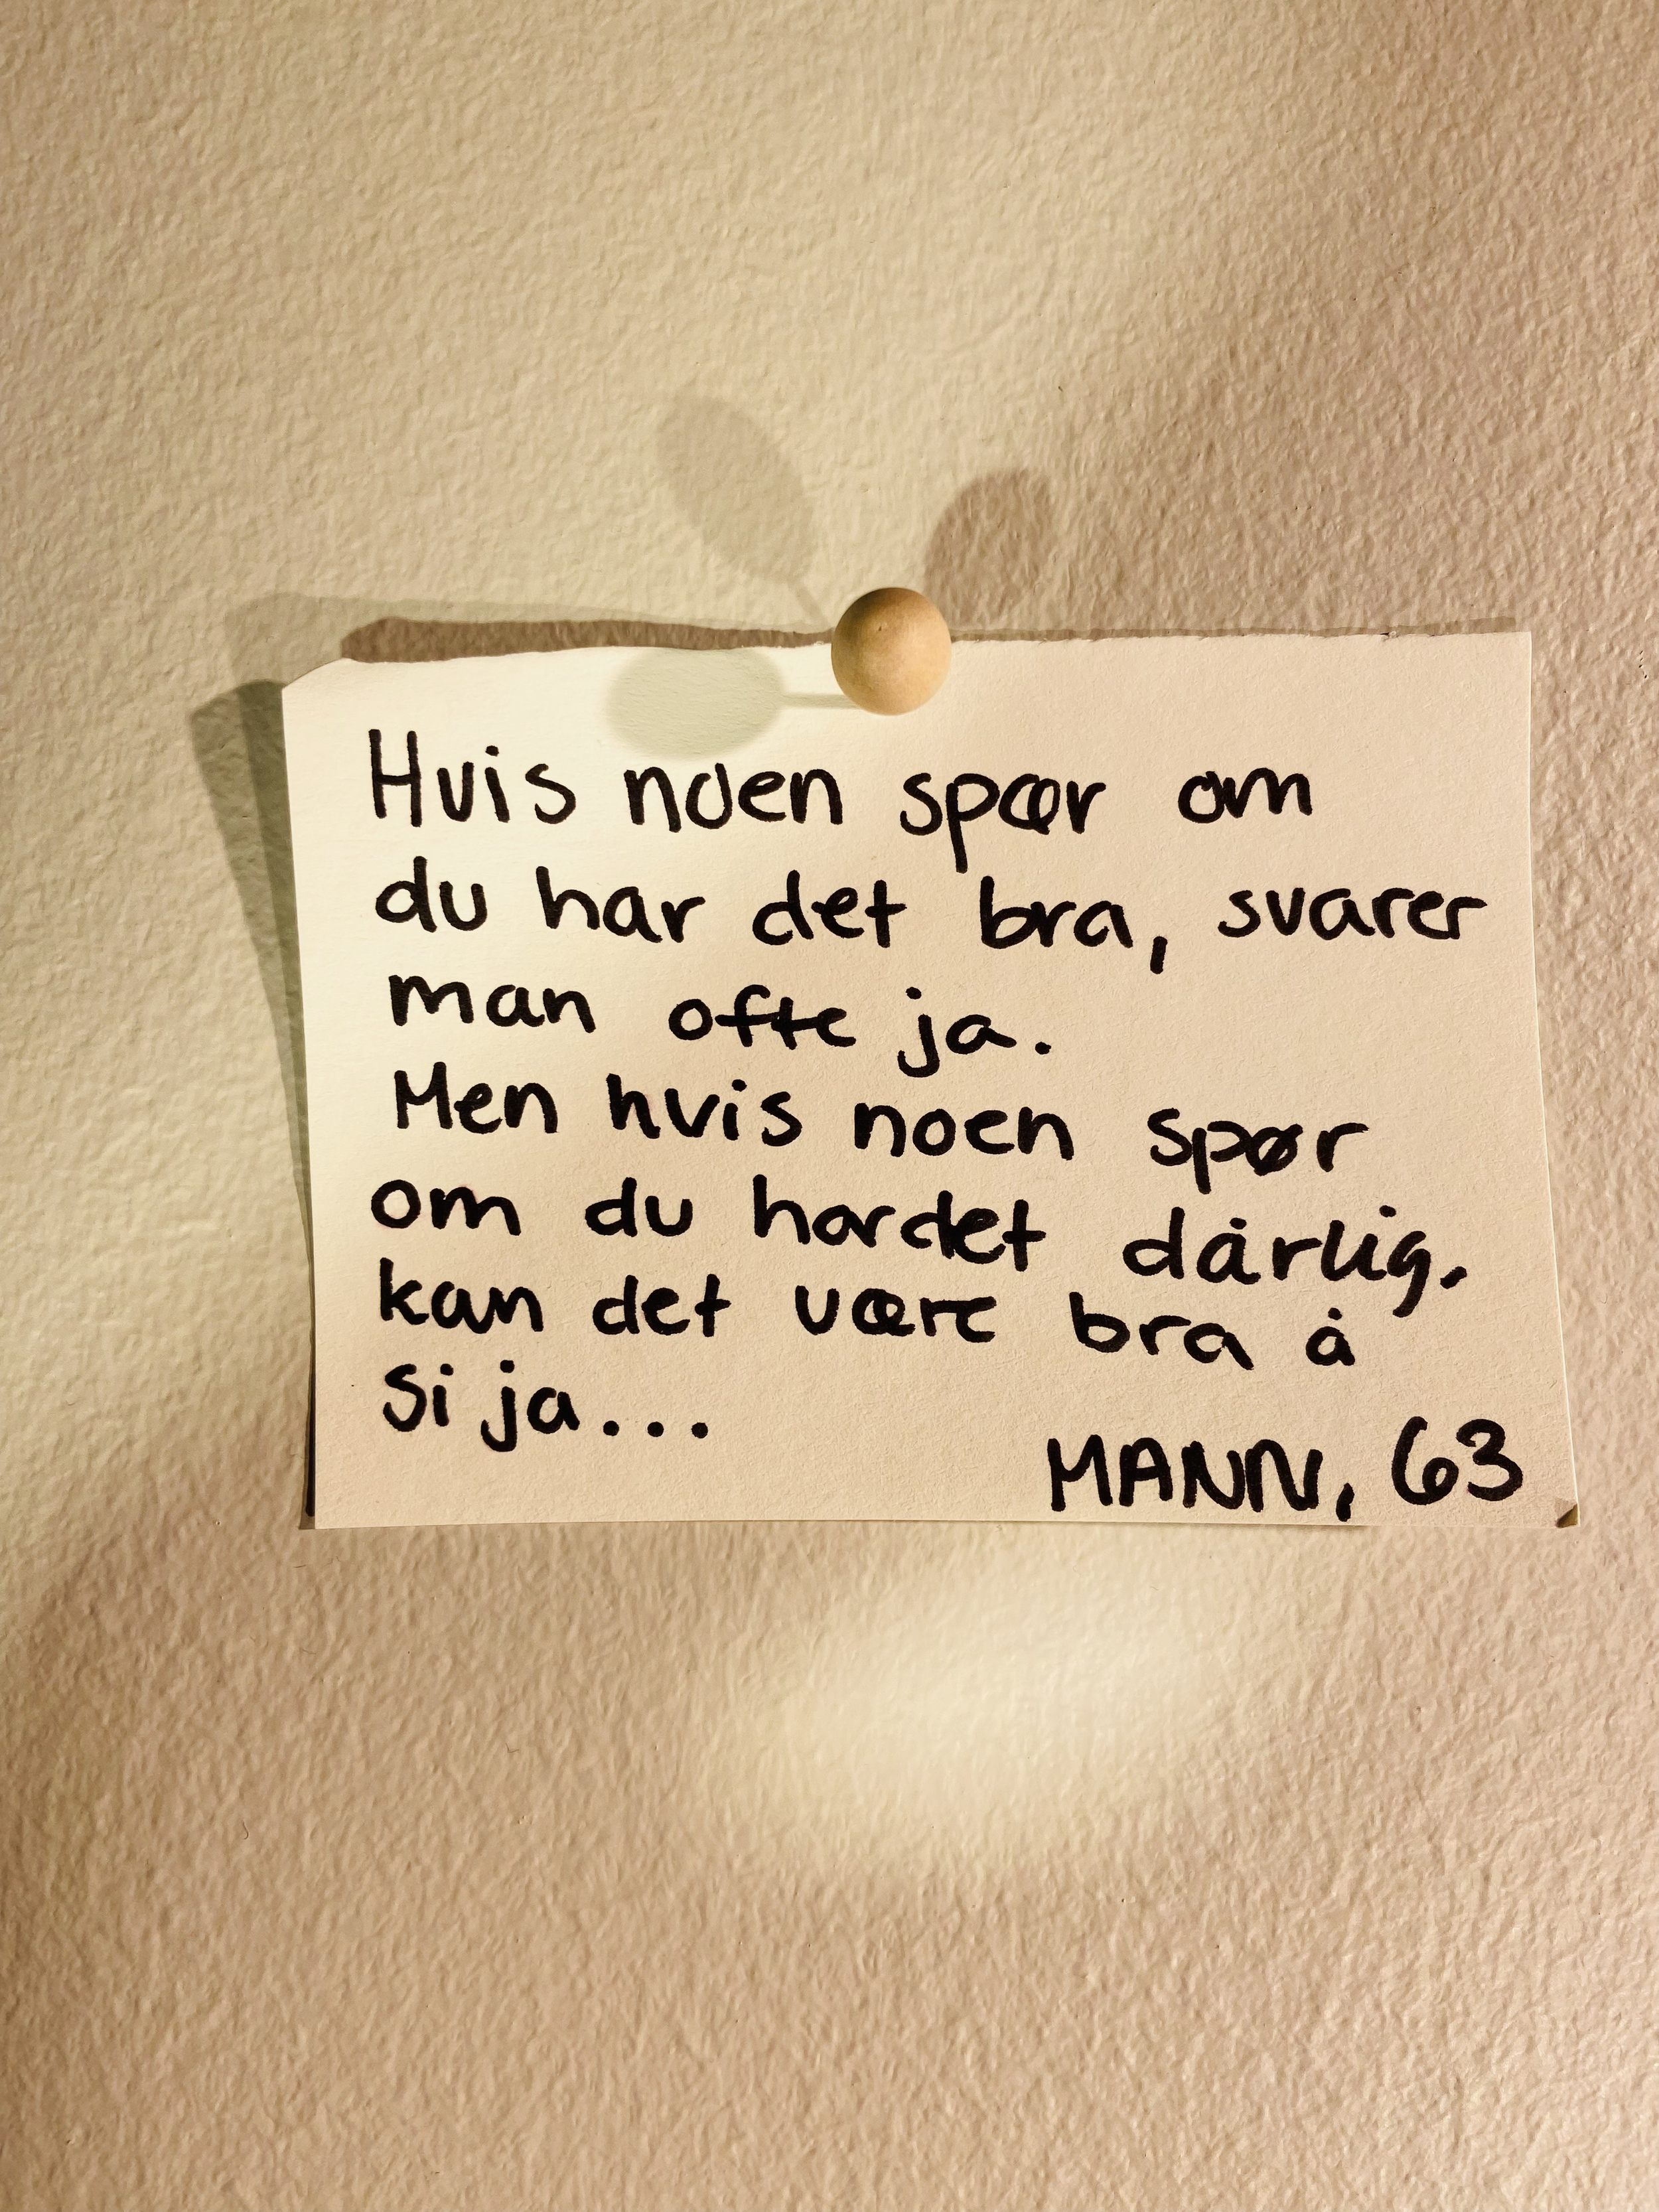 Hvis noen spør om
du har det bra, svarer
man ofte ja.
Men hvis noen spør
om du har det dårlig,
kan det være bra å
si ja...
MANN, 63